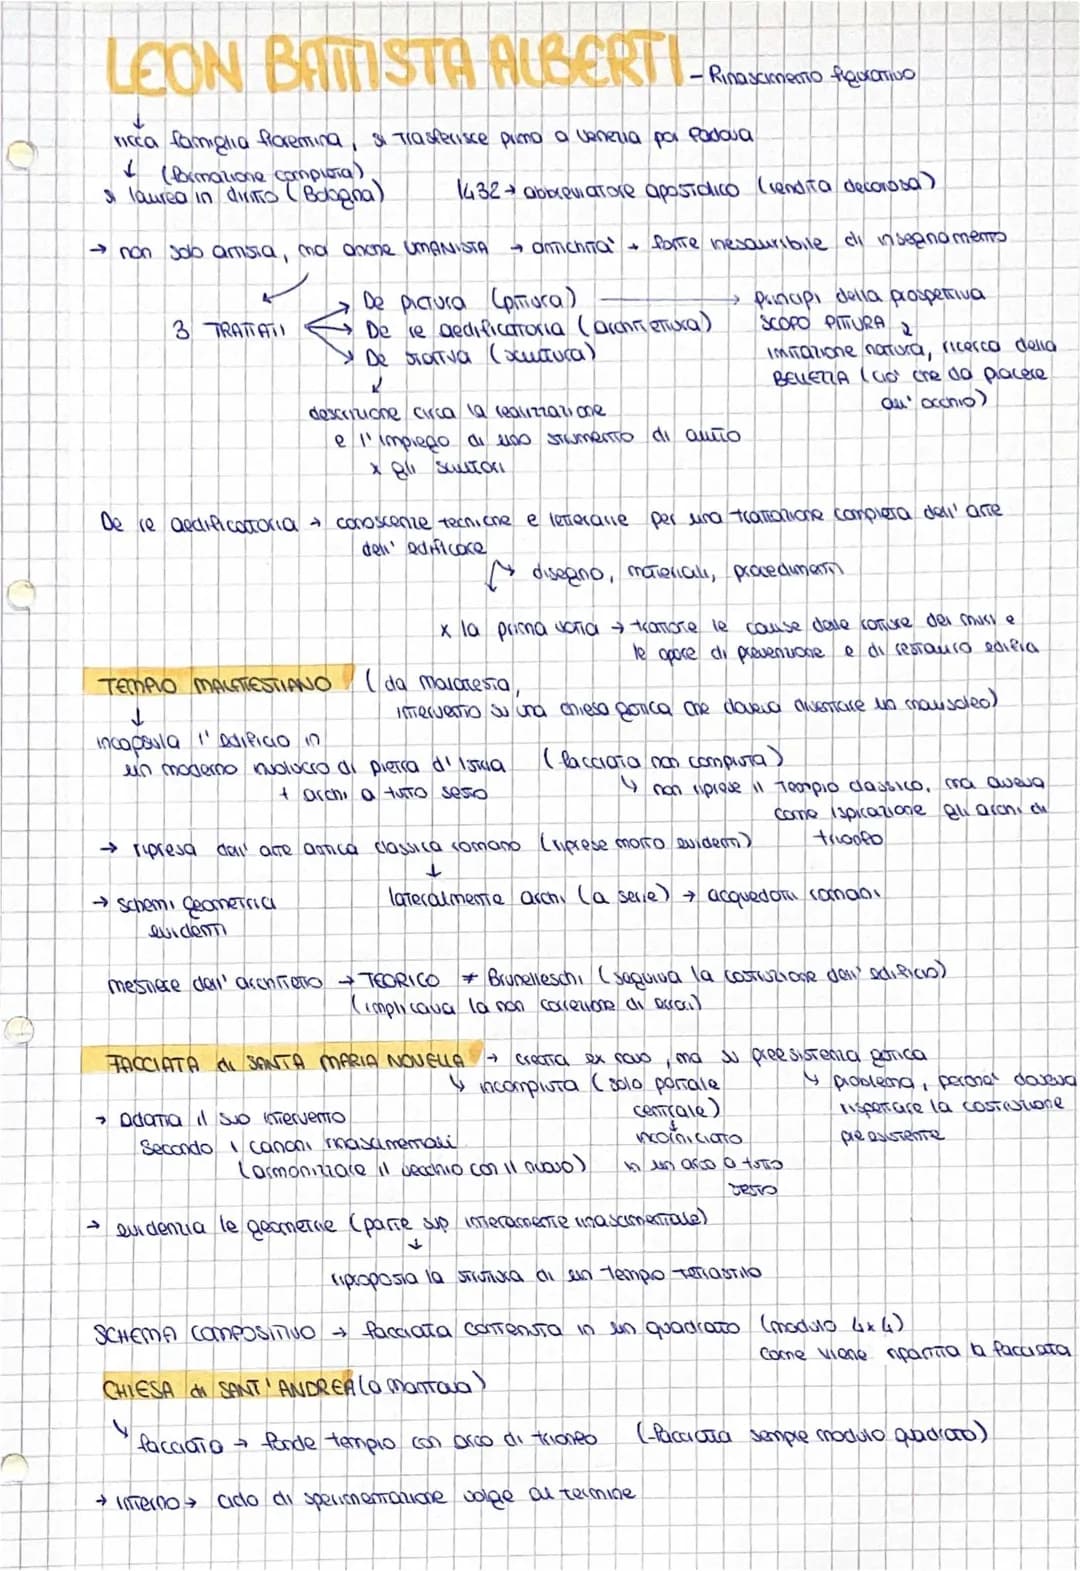 LEON BATTISTA ALBERTI - Rinascimento figurativo
↓
ricca famiglia fiorentina, si trasferisce prima a venezia poi Padova
↓ (formazione compiuta)
si laurea in diritto (Bologna)
1432 → abbreviatore apostolico (rendita decorosa)
→ non solo artista, ma anche UMANISTA → antichità → fonte inesauribile di insegnamento
3 TRATTATI
→ De pictura (pittura)
→ De re aedificatoria (architettura)
→ De statua (scultura)
→ principi della prospettiva
SCOPO PITTURA è
imitazione natura, ricerca della
BELLEZZA (ciò che da piacere
all'occhio)
↓
descrizione circa la realizzazione
e l'impiego di uno strumento di aiuto
x gli scultori
De re aedificatoria → conoscenze tecniche e letterarie per una trattazione completa dell'arte
dell'edificare
→ disegno, materiali, procedimenti
x la prima volta → trattare le cause delle rotture dei muri e
le opere di prevenzione e di restauro edifici
TEMPIO MALATESTIANO (da Malatesta,
intervento su una chiesa gotica che doveva diventare un mausoleo)
↓
incapsula l'edificio in
un moderno involucro di pietra d'Istria
+ archi a tutto sesto
(facciata non compiuta)
↳ non riprese il tempio classico, ma aveva
come ispirazione gli archi di
trionfo
→ ripresa dall'arte antica classica romana (riprese molto evidenti)
↓
lateralmente archi (a serie) → acquedotti romani
→ schemi geometrici
evidenti
mestiere dell'architetto → TEORICO ≠ Brunelleschi (seguiva la costruzione dell'edificio)
(implicava la non correzione di errori)
FACCIATA di SANTA MARIA NOVELLA → creata ex novo, ma su preesistenza gotica
↳ incompiuta (solo portale
centrale)
↓
incorniciato
in un arco a tutto
sesto
↳ problema, perché doveva
rispettare la costruzione
preesistente
→ adatta il suo intervento
secondo i canoni rinascimentali
(armonizzare il vecchio con il nuovo)
→ evidenzia le geometrie (parte sup interamente rinascimentale)
↓
riproposta la struttura di un tempio tetrastilo
SCHEMA COMPOSITIVO → facciata contenuta in un quadrato (modulo 4x4)
come viene ripartita la facciata
CHIESA di SANT'ANDREA (a Mantova)
↳ facciata → fonde tempio con arco di trionfo (facciata sempre modulo quadrato)
→ interno → ciclo di sperimentazione volge al termine